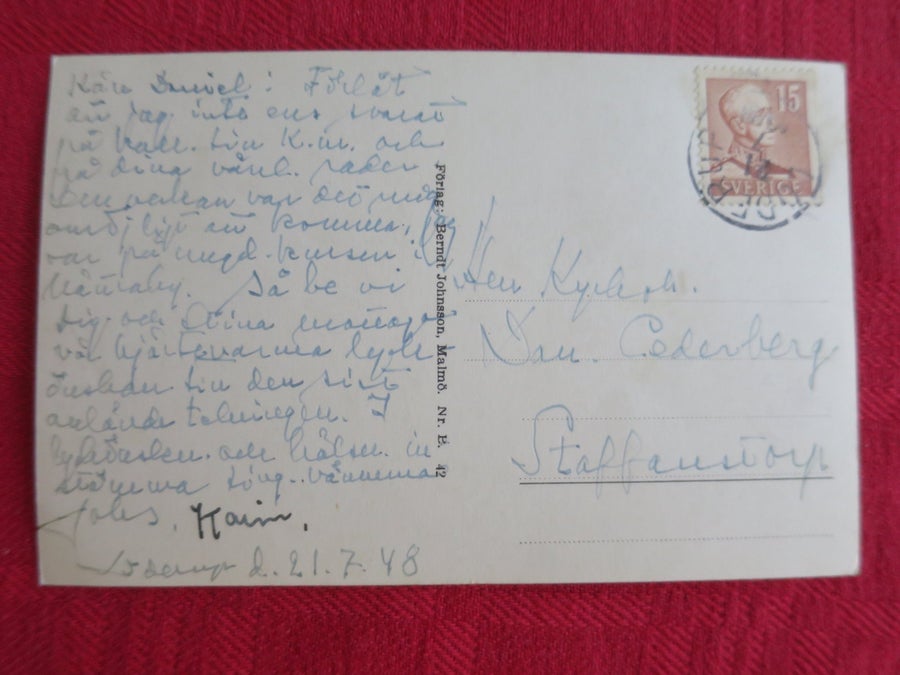 Käre Daniel! Förlåt
att jag inte ens svarat
på kall. till K.m. och
på dina vänl. rader
Men veckan var det mig
omöjligt att komma, jag
var på ungd. kursen i
Så be vi
dig och Stina mottaga
vår hjärtevarma lyck-
önskan till den sist
anlända telningen. I
lyckönsken. och hälsn. in-
stämma sång. vännerna
Karin.
d. 21.7.48
Förlag: Berndt Johnsson, Malmö. Nr. E. 42
15
SVERIGE
Herr Kyrkoh.
Dan. Cederberg
Staffanstorp